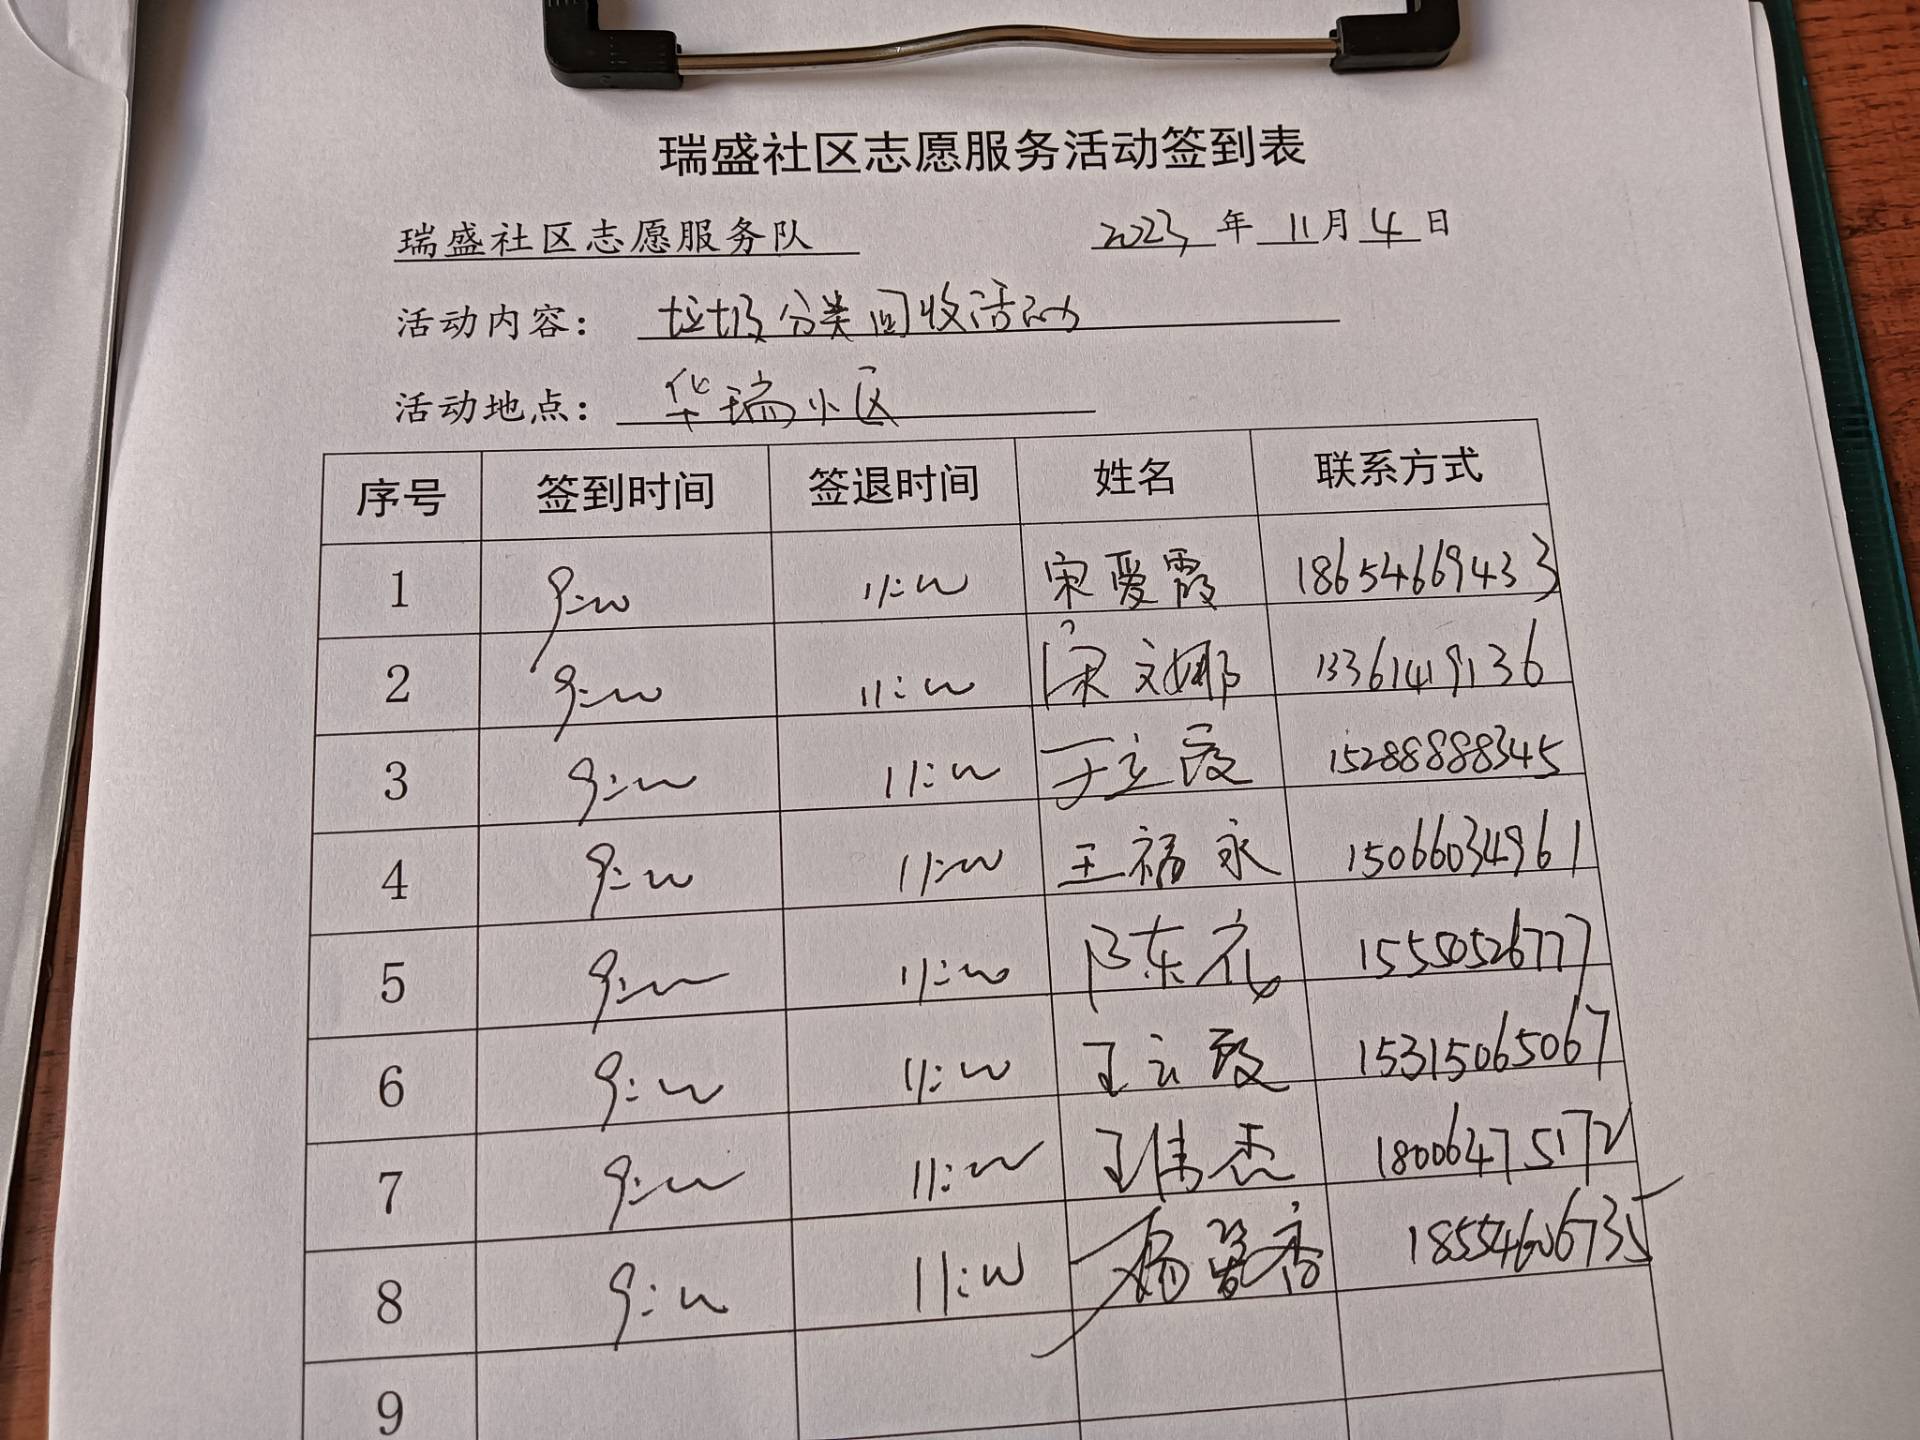 瑞盛社区志愿服务活动签到表
瑞盛社区志愿服务队 2023 年 11 月 4 日
活动内容: 垃圾分类回收活动
活动地点: 华瑞小区
序号 签到时间 签退时间 姓名 联系方式
1 9:00 11:00 宋爱霞 18654669433
2 9:00 11:00 宋文娜 13361419136
3 9:00 11:00 于立霞 15288888345
4 9:00 11:00 王福永 15066034961
5 9:00 11:00 陈东花 15550526777
6 9:00 11:00 王云霞 15315065067
7 9:00 11:00 王伟杰 18006475172
8 9:00 11:00 杨 香 18554606735
9